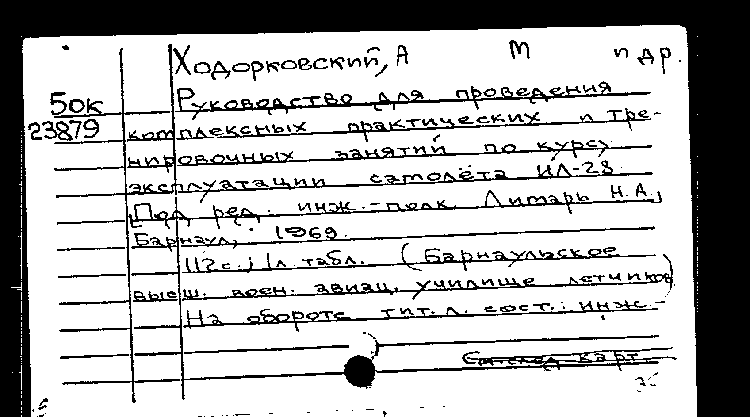 Ходорковский, А М и др.
50к Руководство для проведения
23879 комплексных практических и тре-
нировочных занятий по курсу
эксплуатации самолёта ИЛ-28.
Под ред. инж.-полк. Литарь Н.А.,
Барнаул, 1969.
112с.; 1л табл. (Барнаульское
высш. воен. авиац. училище летчиков)
На обороте тит. л. сост.: инж.-
См. след. карт.